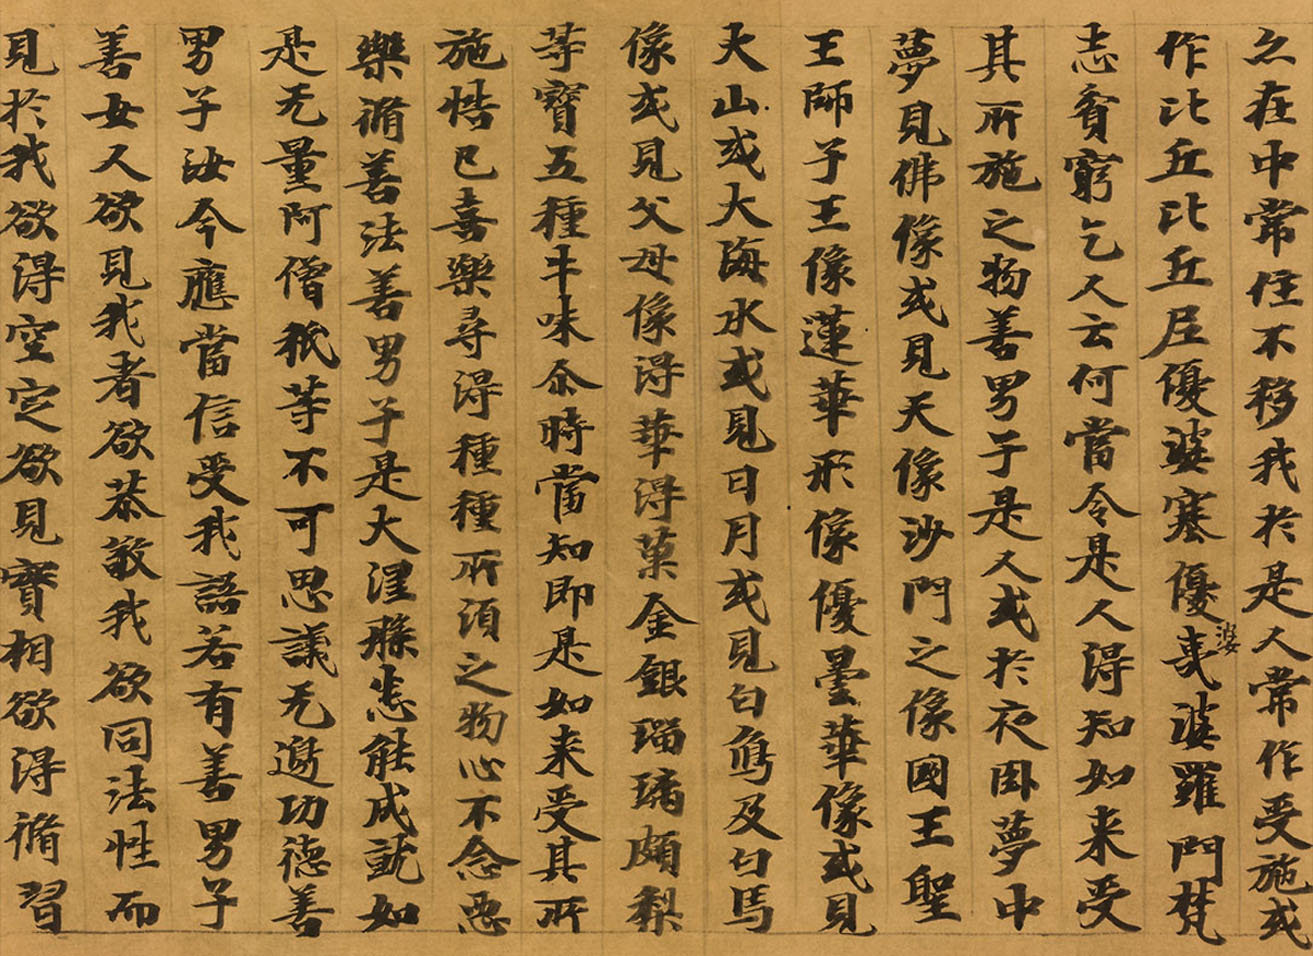 之在中常住不移我於是人常作受施或
作比丘比丘尼優婆塞優婆夷婆羅門梵
志貧窮乞人云何當令是人得知如来受
其所施之物善男子是人或於夜卧夢中
夢見佛像或見天像沙門之像國王聖
王師子王像蓮華形像優曇華像或見
大山或大海水或見日月或見白象及白馬
像或見父母像得華得菓金銀瑠璃頗梨
等寶五種牛味尒時當知即是如来受其所
施悟已喜樂尋得種種所須之物心不念惡
樂脩善法善男子是大涅槃悉能成就如
是无量阿僧祇等不可思議无邊功德善
男子汝今應當信受我語若有善男子
善女人欲見我者欲恭敬我欲同法性而
見於我欲得空定欲見實相欲得脩習